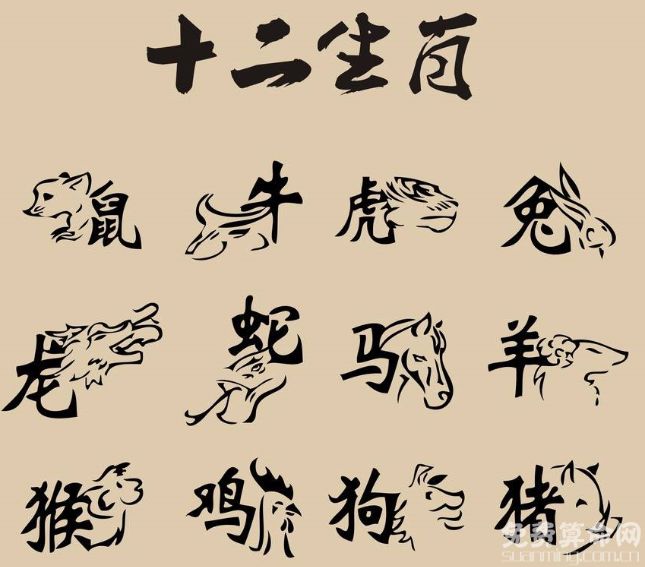 十二生肖
鼠 牛 虎 兔
龙 蛇 马 羊
猴 鸡 狗 猪
免费算命网
suanming.com.cn